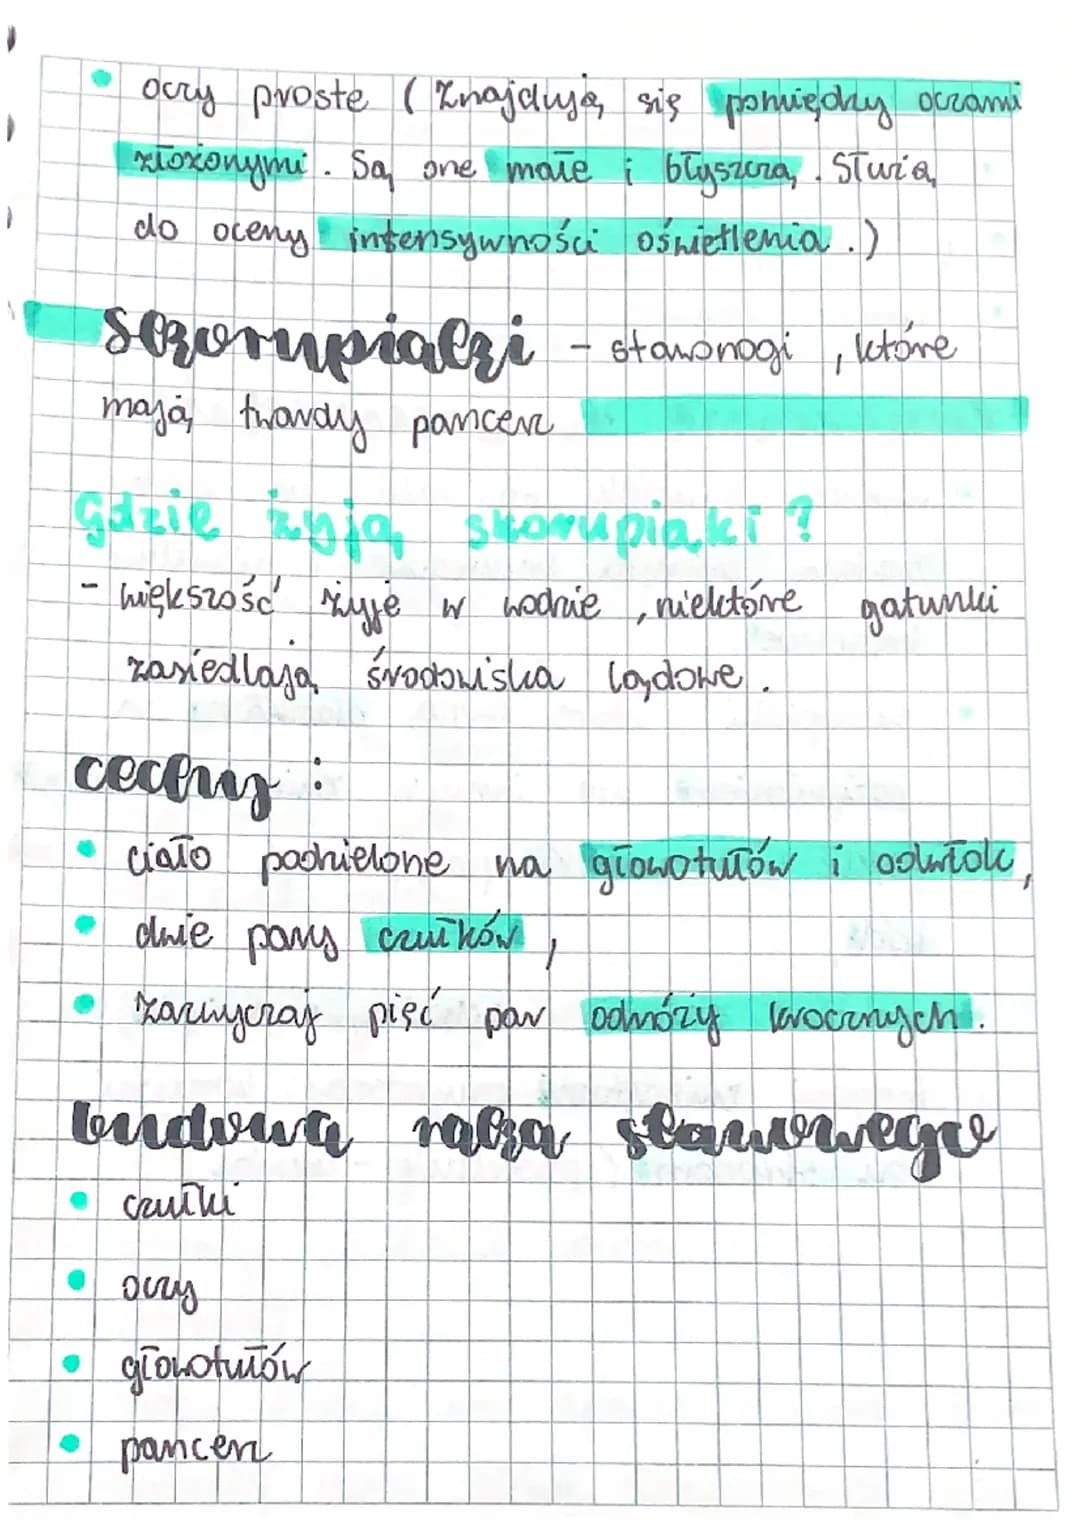 • oczy proste (Znajdują się pomiędzy oczami
złożonymi. Są one małe i błyszczą. Służą
do oceny intensywności oświetlenia.)
skorupiaki - stawonogi, które
mają twardy pancerz
gdzie żyją skorupiaki?
- większość żyje w wodzie, niektóre gatunki
zasiedlają środowiska lądowe.
cechy:
• ciało podzielone na głowotułów i odwłok,
• dwie pary czułków,
• zazwyczaj pięć par odnóży krocznych.
budowa raka stawowego
• czułki
• oczy
• głowotułów
• pancerz